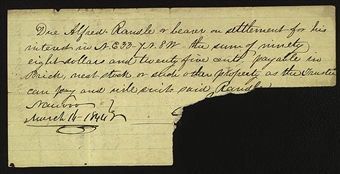 Due Alfred Randle or bearer on settlement for his
interest in N.E 33. 7 N. 8 W. the sum of ninety
eight dollars and twenty five cents payable in
Brick, neat stock or such other property as the Trustees
can pay and will suit said Randle
Nauvoo
March 16 1842